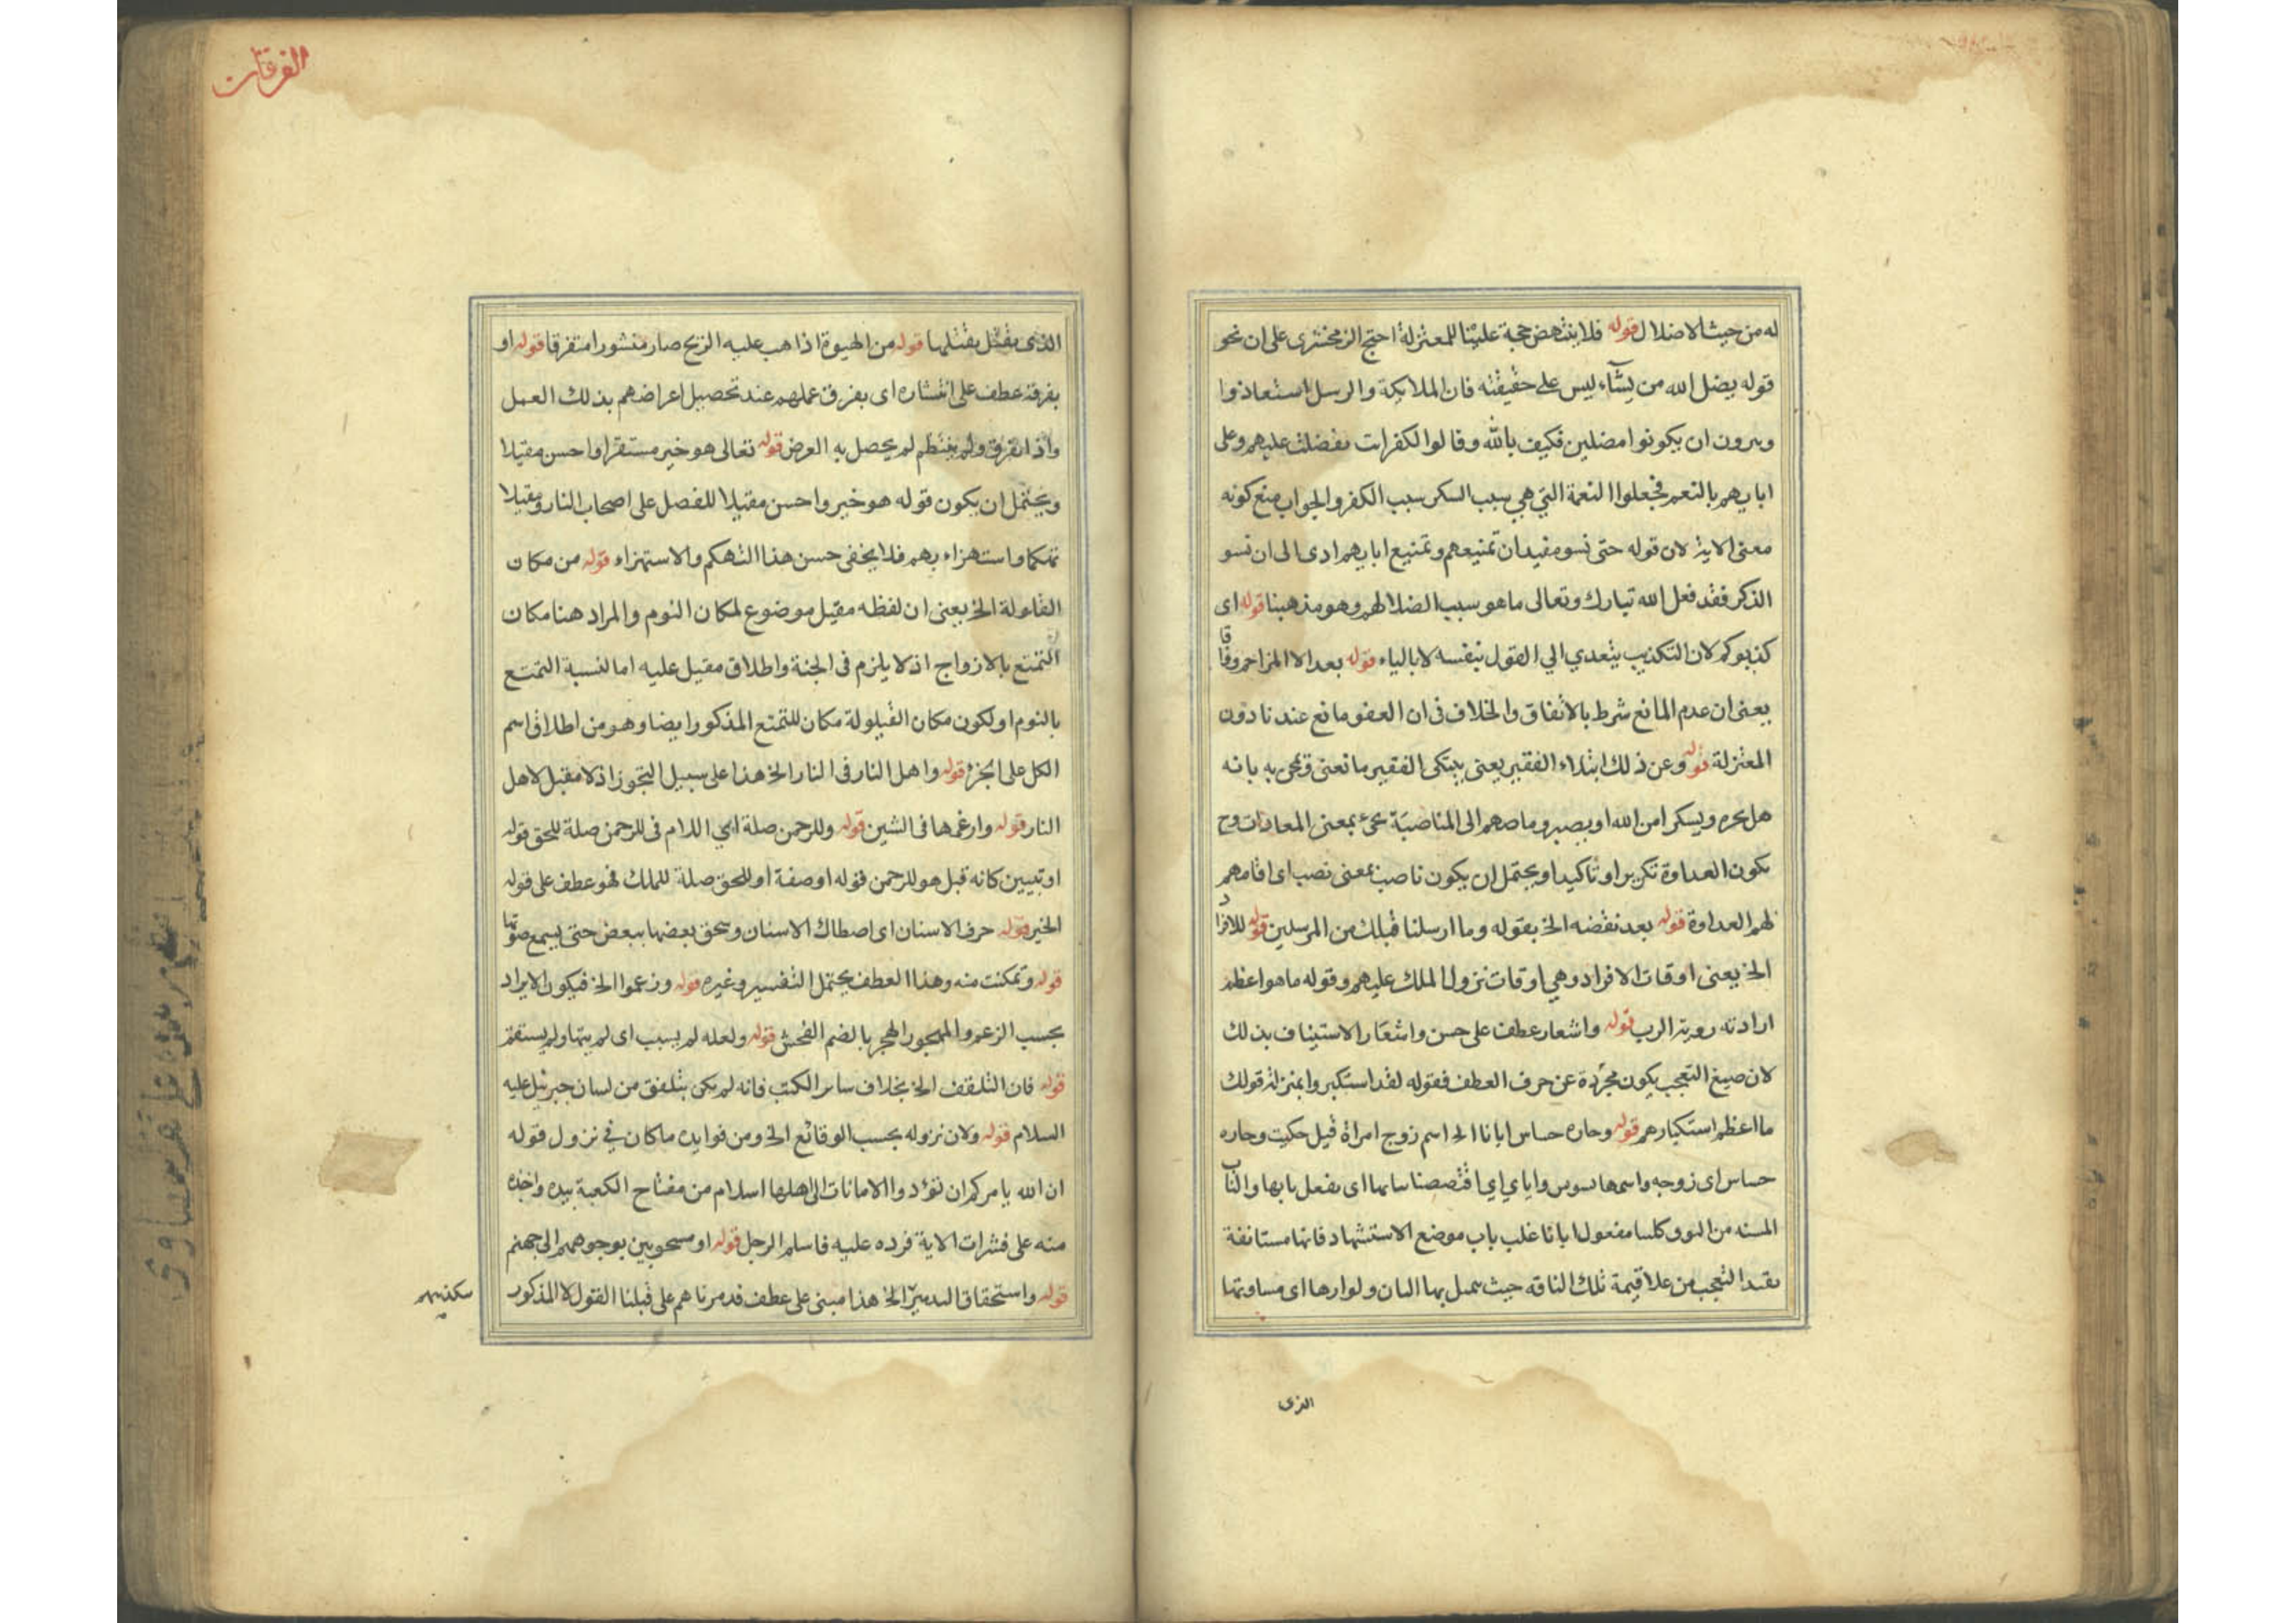 له من حيث الاضلال قوله فلا ينتهض حجة علينا للمعتزلة احتج الزمخشرى على ان نحو
قوله يضل الله من يشآء ليس على حقيقته فان الملايكة والرسل استعاذوا
ان يكونوا مضلين فكيف بالله وقالوا لكفرات عليهم وعلى
ابايهم بالنعم فجعلوا النعمة التي هي سبب السكر سبب الكفر والجواب منع كونه
معنى الاية لان قوله حتى نسو مفيد ان تمتيعهم وتمتيع ابايهم ادى الى ان نسو
الذكر فقد فعل الله تبارك وتعالى ما هو سبب الضلا لهم وهو مذهبنا قوله اى
كذبوكم لان التكذيب يتعدي الي القول بنفسه لا بالياء قوله بعد الا المزاحم وفاقا
يعنى ان عدم المانع شرط بالاتفاق والخلاف فى ان العفو مانع عندنا دون
المعتزلة قوله وعن ذلك ابتلاء الفقير يعنى الفقير ما نعنى به بانه
هل ويسكر امن الله او يصبر المناصبة بمعنى المعادات وح
يكون العداوة تكريرا وتاكيدا ويحتمل ان يكون ناصب بمعنى نصب اى اقامهم
لهم العداوة قوله بعد نقضه الخ بقوله وما ارسلنا قبلك من المرسلين قوله للافراد
الخ يعنى اوقات الافراد وهي اوقات نزول الملك عليهم وقوله ما هو اعظم
ارادته روية الرب قوله واشعار عطف على حسن واشعار الاستيناف بذلك
لان صيغ التعجب يكون مجردة عن حرف العطف فقوله لقد استكبروا بمنزلة قولك
ما اعظم استكبارهم قوله وجاره جساس ابانا الخ اسم زوج امراة قيل حكيت وجاره
جساس اى زوجه واسمها بسوس واباي اي اقتصصنا اى بفعل بابها والناب
المسنه من النوق مفعول ابانا غلب باب موضع الاستشهاد فانها مستانفة
التعجب من علا قيمة تلك الناقه حيث اى مساوتها
الذى
الفرقان
الذى يفتل بفتلها قوله من الهبوة اذا هب عليه الريح صار منشورا متفرقا قوله او
بفرقة عطف على انتشاره اى بفرق عملهم عند تحصيل اعراضهم بذلك العمل
واذا تفرق ولم ينتظم لم يحصل به العرض قوله تعالى هو خير مستقرا واحسن مقيلا
ويحتمل ان يكون قوله هو خير واحسن مقيلا للفصل على اصحاب النار ومقيلا
تهكما واستهزاء بهم فلا يخفى حسن هذا التهكم والاستهزاء قوله من مكان
القايولة الخ يعنى ان لفظه مقيل موضوع لمكان النوم والمراد هنا مكان
التمتع بالازواج اذ لا يلزم فى الجنة واطلاق مقيل عليه اما لنسبة التمتع
بالنوم او لكون مكان القيلولة مكان للتمتع المذكور ايضا وهو من اطلاق اسم
الكل على الجزء قوله واهل النار فى النار الخ هذا على سبيل التجوز اذ لا مقيل لاهل
النار قوله وارغمها فى الشين قوله وللرحمن صلة اي اللام فى للرحمن صلة للحق قوله
او تبيين كانه قيل هو للرحمن قوله او صفة او للحق صلة للملك فهو عطف على قوله
الخير قوله حرف الاسنان اى اصطاك الاسنان وسحق بعضها ببعض حتى يسمع صوتها
قوله وتمكنت منه وهذا العطف يحتمل التفسير وغيره قوله وزعموا الخ فيكون الايراد
بحسب الزعم والمهجور الهجر بالضم الفحش قوله ولعله لم يسبب اى لم يتها ولم يستقم
قوله فان التلقف الخ بخلاف ساير الكتب فانه لم يكن بتلفق من لسان جبرئيل عليه
السلام قوله ولان نزوله بحسب الوقائع الخ ومن فوايده ما كان في نزول قوله
ان الله يامركم ان تؤدوا الامانات الى اهلها اسلام من مفتاح الكعبة بيده واخذه
منه على فنثرات الاية فرده عليه فاسلم الرجل قوله او مسحوبين بوجوههم الى جهنم
قوله واستحقاق الخ هذا مبنى على عطف فدمرناهم على قبلنا القول لا المذكور